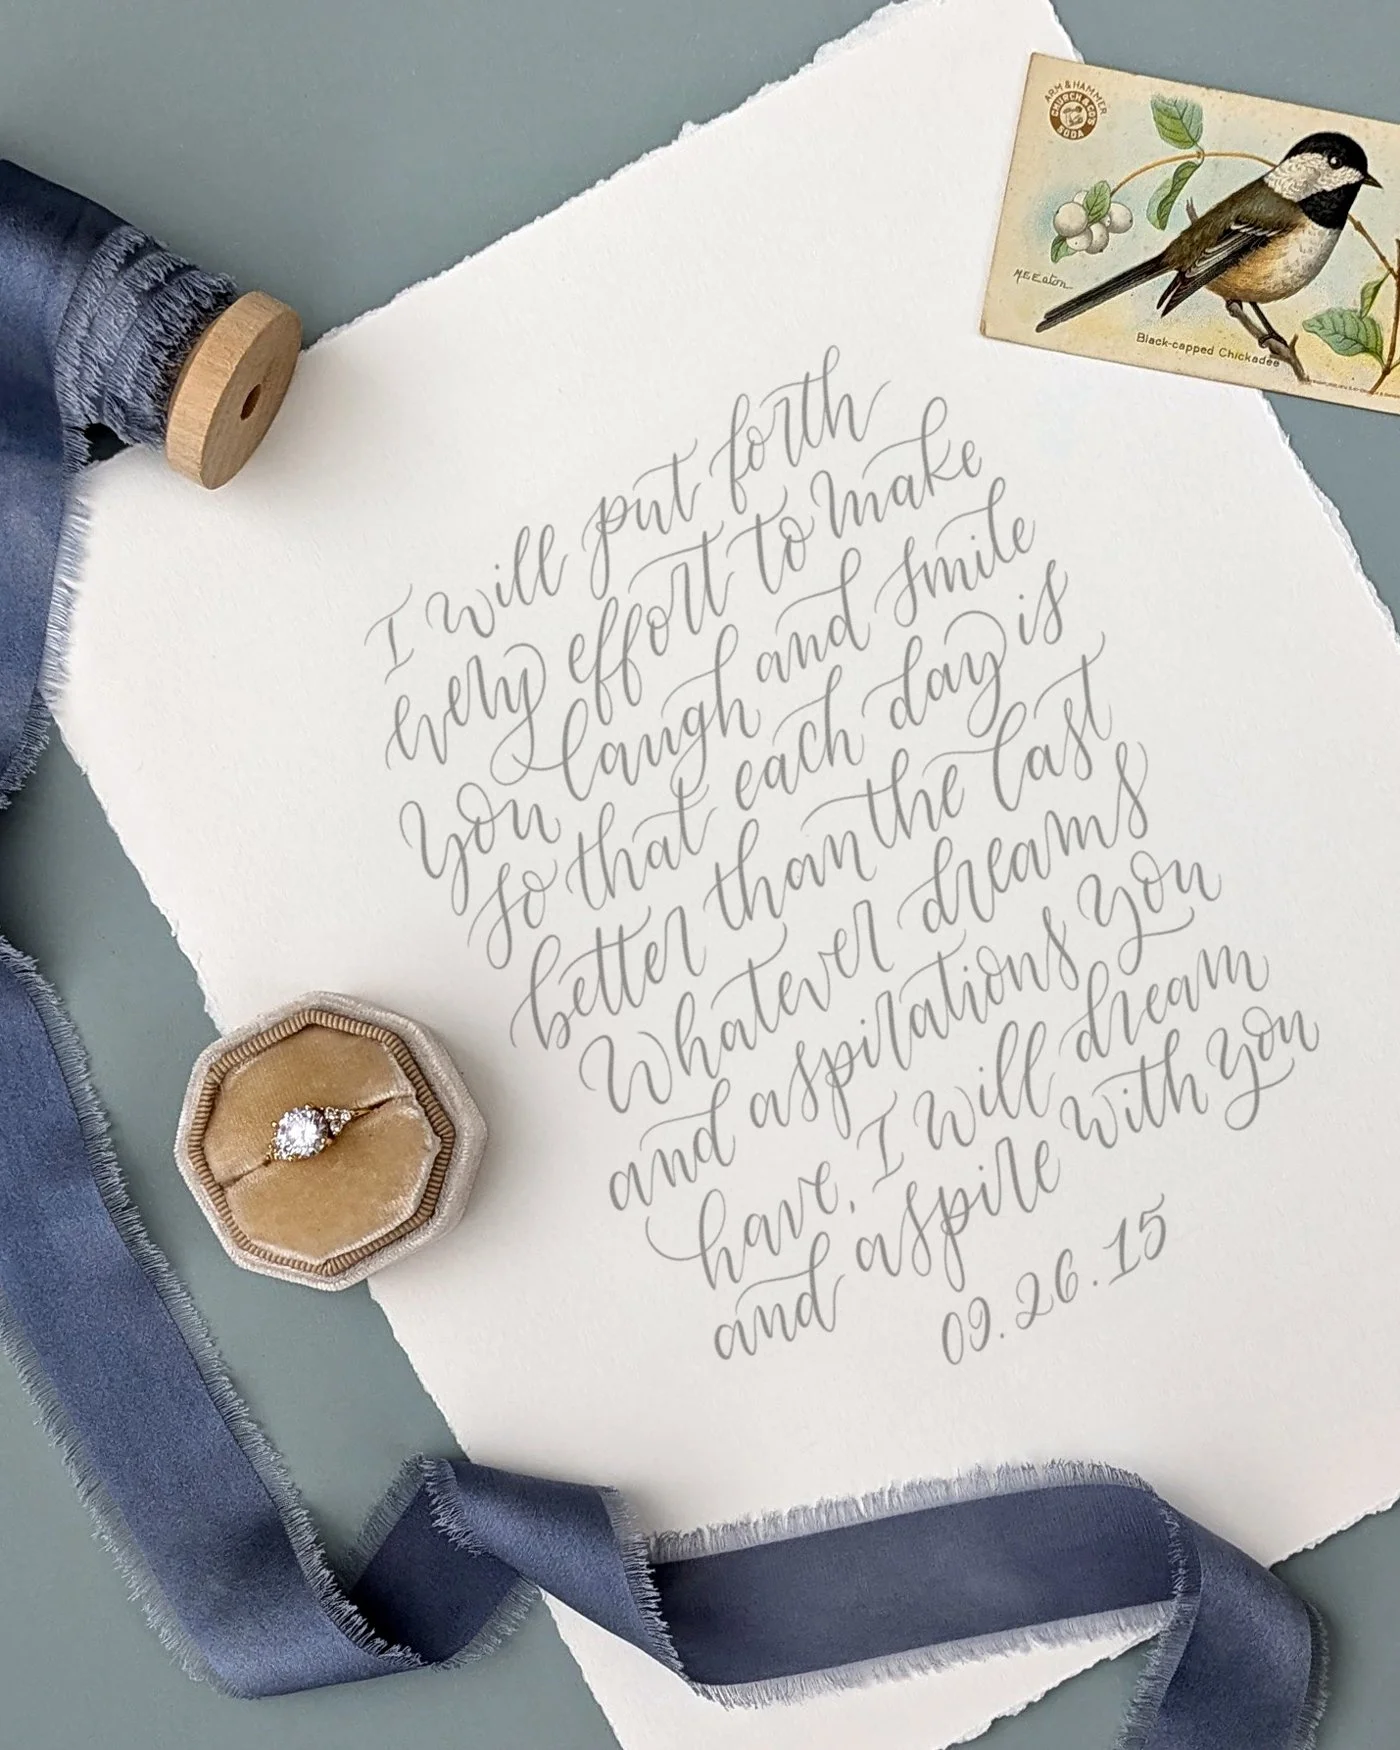 ARM & HAMMER
CHURCH & CO'S
SODA
M.E. Eaton
Black-capped Chickadee
I will put forth
every effort to make
you laugh and smile
so that each day is
better than the last
Whatever dreams
and aspirations you
have, I will dream
and aspire with you
09.26.15